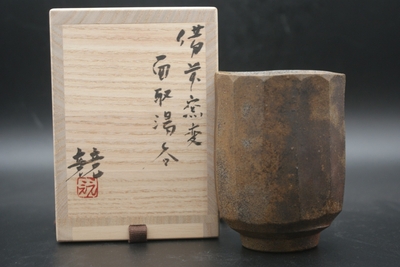 備前窯変
面取湯呑